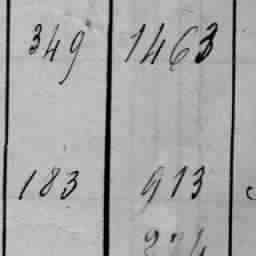 349 1463
183 913